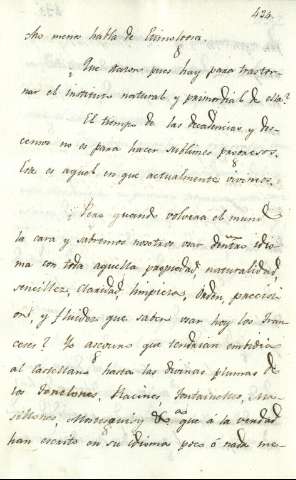 434.
cho menos habla de Etimología.
¿Que razon pues hay para trastor-
nar el instituto natural y primordial de ella?
El tiempo de las decadencias y des-
censos no es para hacer sublimes progresos.
Este es aquel en que actualmente vivimos.
¿Pero quando volverá el mundo
la cara y sabremos nosotros usar de ntro idio-
ma con toda aquella propiedad, naturalidad,
sencillez, claridad, limpieza, orden, precisi-
on, y fluidez que saben usar hoy los Fran-
ceses? Yo aseguro que tendrian embidia
al Castellano hasta las divinas plumas de
los Fenelones, Racines, Fontainelles, Ma-
sillones, Montesquieu, &as que á la verdad
han escrito en su idioma poco ó nada me-